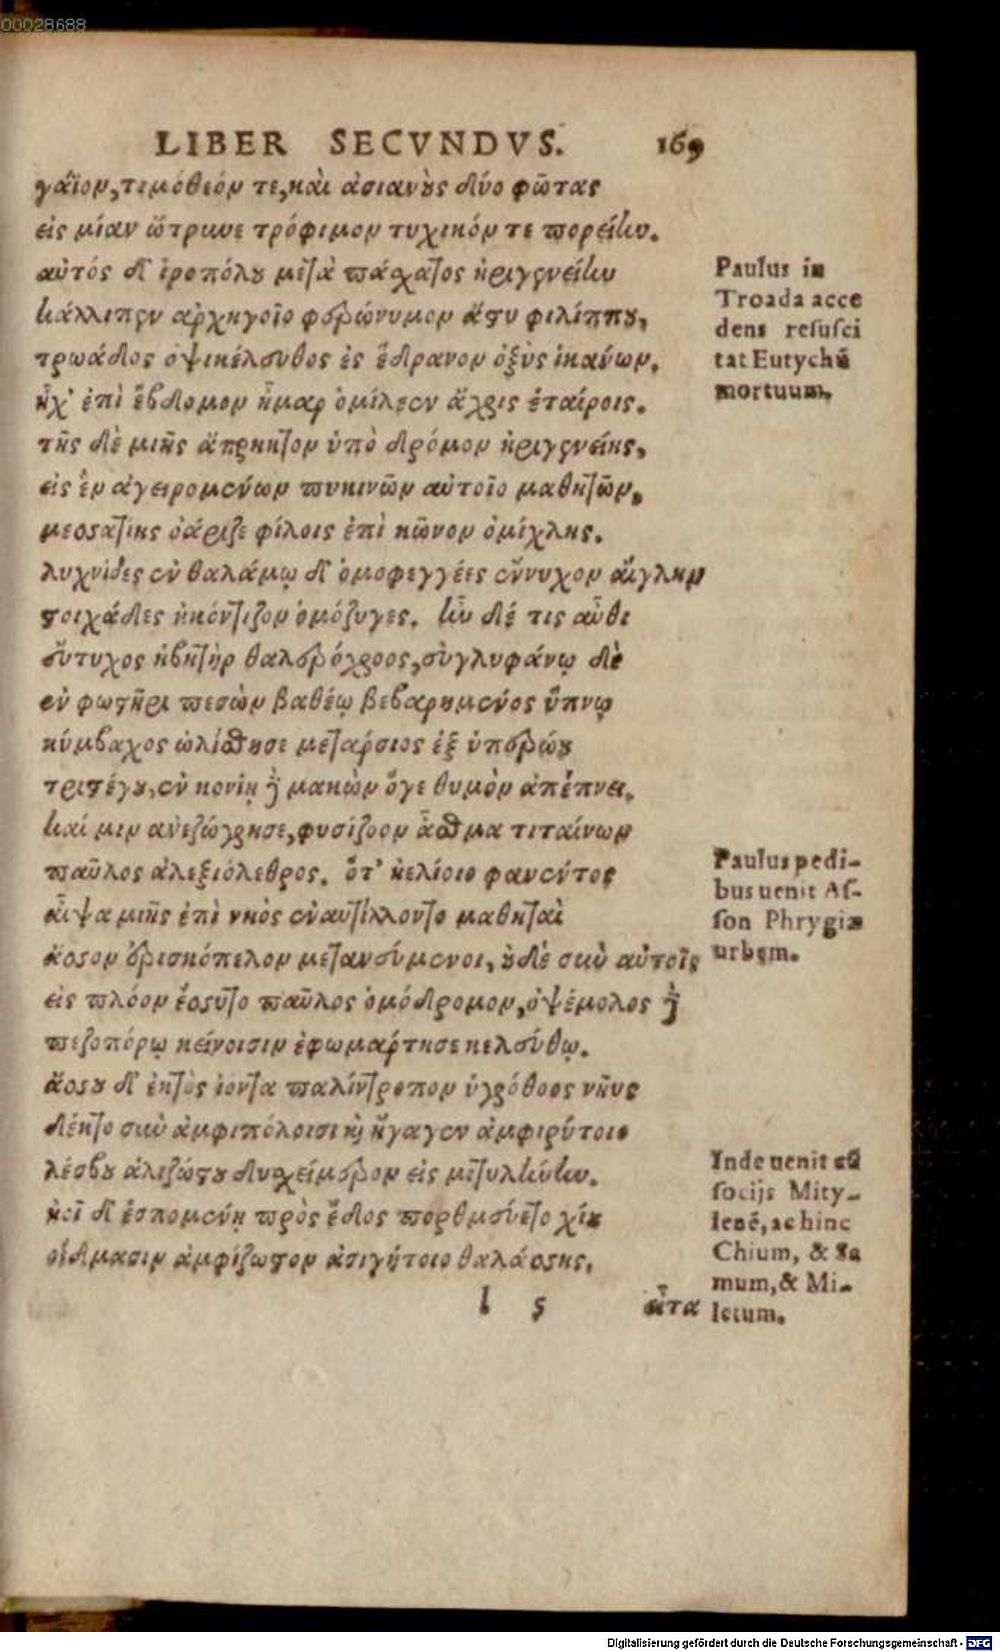 00028688
LIBER SECVNDVS. 169
γάϊον, τιμόθεόν τε, καὶ ἀσιανοὺς δύο φῶτας
εἰς μίαν ὤτρυνε τρόφιμον τυχικόν τε πορείην.
αὐτός δ' ἱροπόλου μετὰ πάσχατος ἠριγένειαν
κάλλιπεν ἀρχηγοῖο φερώνυμον ἄστυ φιλίππου,
τρωάδος ὀψικέλευθος ἐς ἕδρανον ὀξὺς ἱκάνων,
ἧχ' ἐπὶ ἕβδομον ἦμαρ ὁμίλεεν ἄχρις ἑταίροις.
τῆς δὲ μιῆς ἄπρηκτον ὑπὸ δρόμον ἠριγενείης,
εἰς ἓν ἀγειρομένων πυκινῶν αὐτοῖο μαθητῶν,
μεσσατίης ὀάριζε φίλοις ἐπὶ κῶνον ὁμίχλης.
λυχνίδες ἐν θαλάμῳ δ' ὁμοφεγγέες ἔννυχον αἴγλην
στοιχάδες ἠκόντιζον ὁμόζυγες. ἦν δέ τις αὖθι
εὔτυχος ἡβητὴρ θαλερόχροος, εὐγλυφάνῳ δὲ
ἐν φωστῆρι πεσὼν βαθέῳ βεβαρημένος ὕπνῳ
κύμβαχος ὠλίσθησε μετάρσιος ἐξ ὑπερῴου
τριστέγου, ἐν κονίῃ δὲ μακὼν ὅγε θυμὸν ἀπέπνει.
καί μιν ἀνεζώγρησε, φυσίζοον ἆσθμα τιταίνων
παῦλος ἀλεξιόλεθρος. ὅτ' ἠελίοιο φανέντος
αἶψα μιῆς ἐπὶ νηὸς ἐναυτίλλοντο μαθηταὶ
ἄσσον ἐρισκόπελον μετανεύμενοι, οὐδὲ σὺν αὐτοῖς
εἰς πλόον ἔσσυτο παῦλος ὁμόδρομον, ὀψέμολος δὲ
πεζοπόρῳ κείνοισιν ἐφωμάρτησε κελεύθῳ.
ἄσσου δ' ἐκτὸς ἰόντα παλίντροπον ὑγρόθοος νηῦς
δέκτο σὺν ἀμφιπόλοισι καὶ ἤγαγεν ἀμφιρύτοιο
λέσβου ἁλιζώστου δυσχείμερον εἰς μιτυλήνην.
ἠοῖ δ' ἑσπομένῃ πρὸς ἕδος πορθμεύετο χίου
οἴδμασιν ἀμφίζωστον ἀσιγήτοιο θαλάσσης.
l 5 εἶτα
Paulus in
Troada acce
dens resusci
tat Eutychū
mortuum.
Paulus pedi-
bus uenit As-
son Phrygiæ
urbem.
Inde uenit cū
socijs Mity-
lenē, ac hinc
Chium, & Sa
mum, & Mi-
letum.
Digitalisierung gefördert durch die Deutsche Forschungsgemeinschaft - DFG